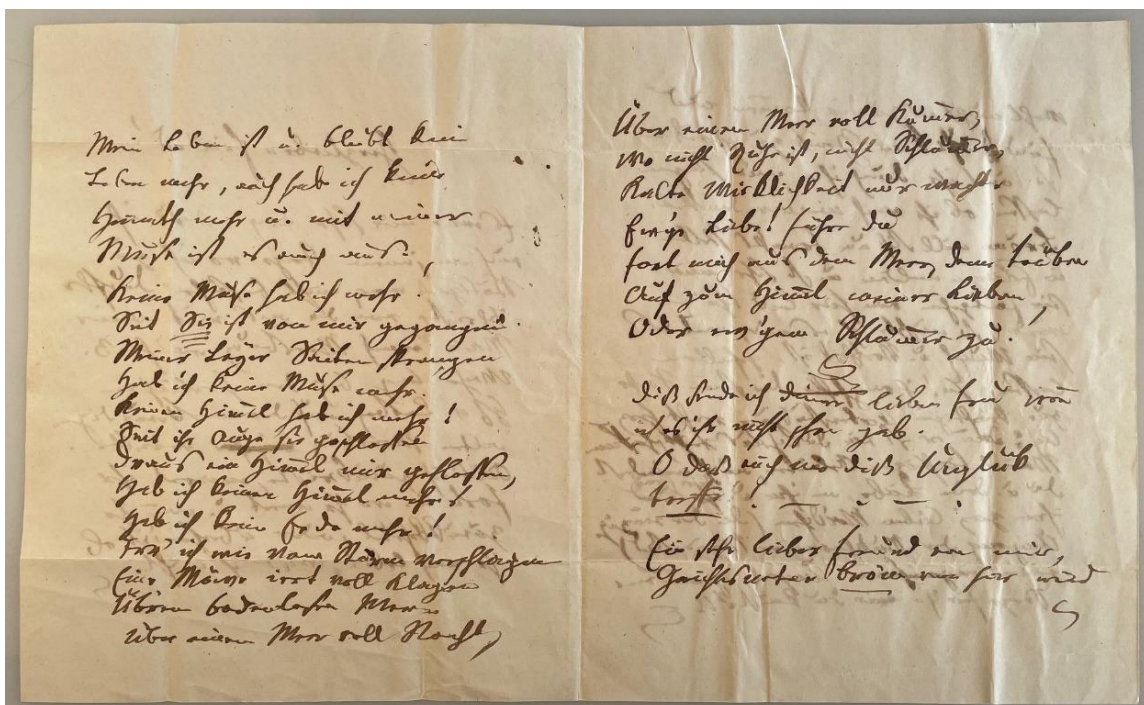 Mein Leben ist u. bleibt kein
Leben mehr, auch hab ich keine
Heimath mehr u. mit meiner
Muse ist es auch aus.
Keine Muse hab ich mehr.
Seit Sie ist von mir gegangen
Meiner Leyer Saiten sprangen
Hab ich keine Muse mehr.
Keinen Himel hab ich mehr!
Seit ihr Auge sie geschlossen
Draus ein Himel mir geflossen,
Hab ich keinen Himel mehr!
Hab ich kein Erde mehr!
Irr' ich wie vom Sturm verschlagen
Eine Möwe irrt voll Klagen
Über'm bodenlosen Meer
Über einem Meer voll Nacht,
Über einem Meer voll Kumer,
Wo nicht Ruhe ist, nicht Schlumer,
Kalte Wirklichkeit nur wacht.
Ew'ge Liebe! führe du
fort mich aus dem Meer, dem trüben
Auf zum Himel meiner Lieben,
Oder ew'gem Schlumer zu.
Diß sende ich deiner lieben Frau wen
ich es ihr nicht schon gab.
O daß euch nie diß Unglük
treffe!
Ein sehr lieber Freund von mir,